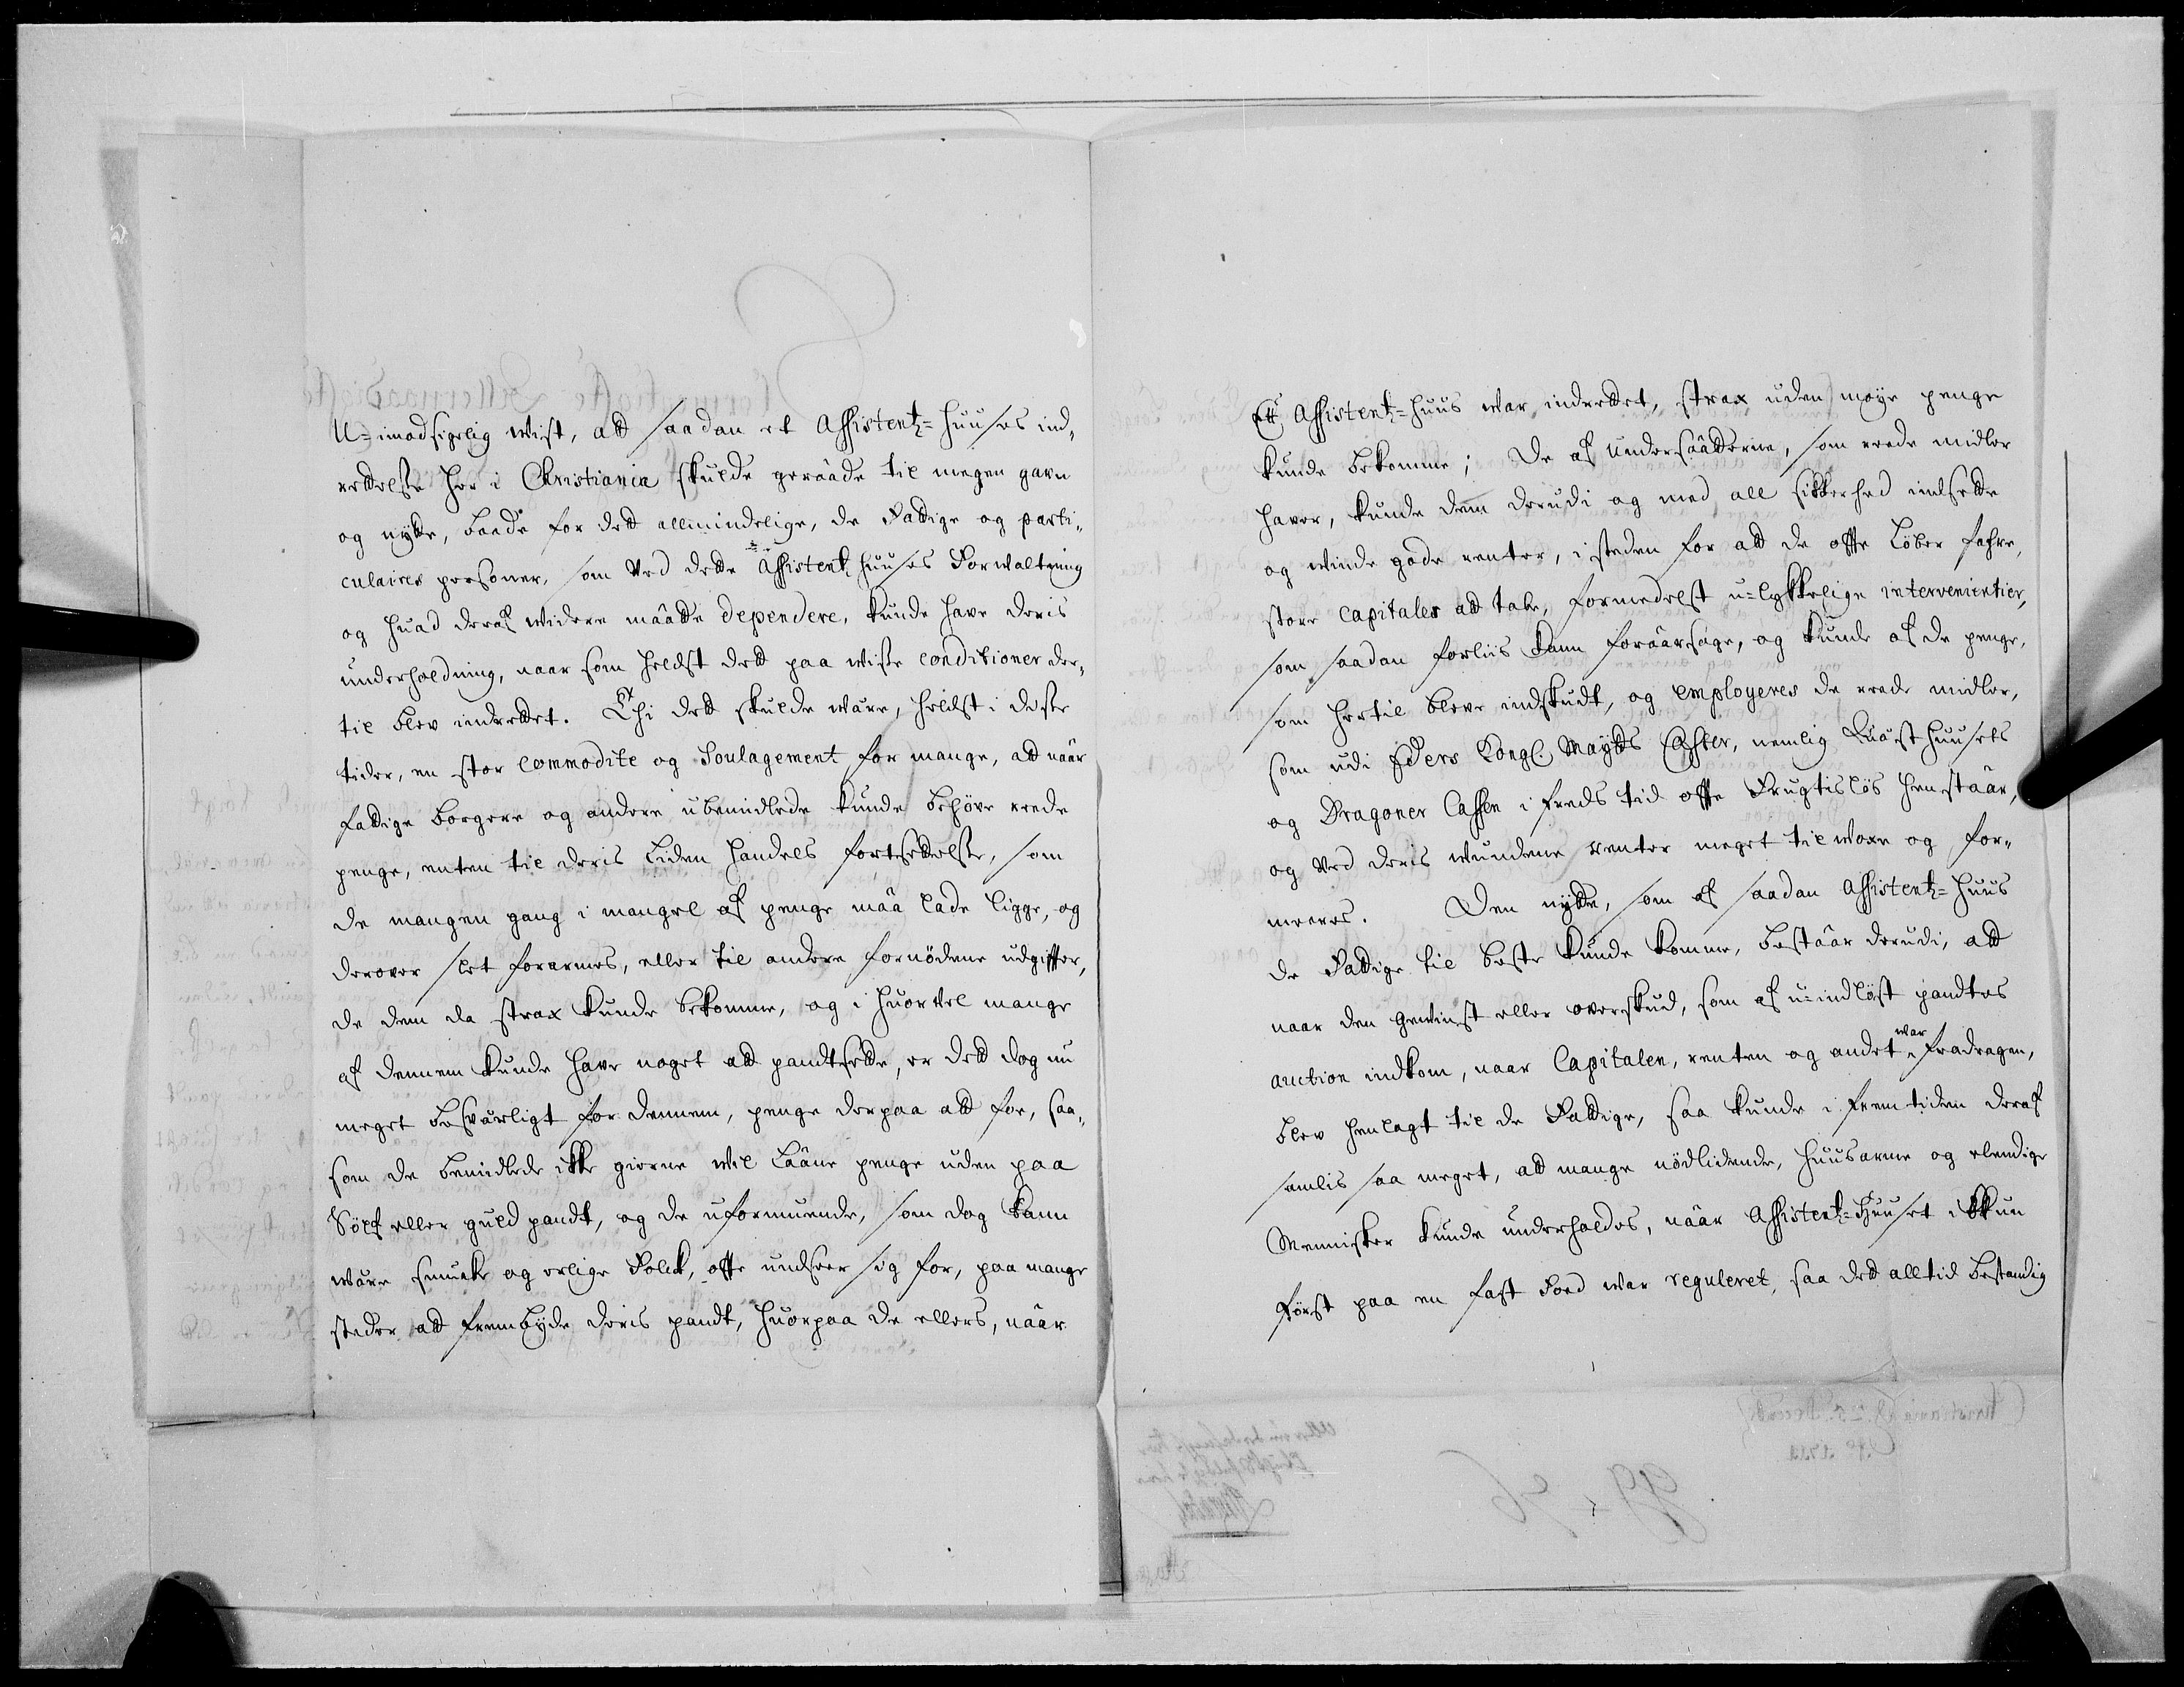 U=imodsigelig wist, att saadan et Assistentz=Huuses ind,,
rettelse her i Christiania skulde geraade til megen gavn
og nytte, baade for dett allmindelige, de Fattige og parti,,
culaires personer, som ved dette Assistentz Huuses Forwaltning
og huad deraf widere maatte dependere, kunde have deris
underholdning, naar som heldst dett paa wisse conditioner der,,
til blev indrettet. Thi dett skulde være, heldst i disse
tider, en stor commodite og Soulagement for mange, att naar
fattige borgere og andere ubemidlede kunde behöve reede
penge, enten til deris liden handels fortsettelse, som
de mangen gang i mangel af penge maa lade ligge, og
derover slet forarmes, eller til andere fornödene udgifter,
de dem da strax kunde bekomme, og i huorvel mange
af dennem kunde have noget att pandtsette, er dett dog nu
meget besværligt for dennem, penge derpaa att for, saa,,
som de bemidlede ikke gierne wil laane penge uden paa
Sölf eller guld pandt, og de uformuende, som dog kann
være smucke og erlige Folck, ofte undseer sig for, paa mange
steder att frembyde deris pandt, huorpaa de ellers, naar
Ett Assistentz=Huus war indrettet, strax uden möye penge
kunde bekomme; De af Undersaatterne, som reede midler
haver, kunde dem derudi og med all sikkerhed indsette
og winde gode renter, isteden for att de ofte löber fahre,
store capitaler att tabe, formedelst u=lykkelige intervenientier,
som saadan forliis kann foraarsage, og kunde af de penge,
som hertil bleve indskudt, og employeres de reede midler,
som udi Eders Kongl. Maytts Casser, nemlig Quæsthuusets
og Dragoner Cassen i freds tid ofte Frugtislös henstaar,
og ved deris wundene renter meget tilwoxe og for,,
meeres. Den nytte, som af saadan Assistentz=Huus
de Fattige til beste kunde komme, bestaar derudi, att
naar den Gewinst eller overskud, som af u=indlöst pandtes
auction indkom, naar Capitalen, renten og andet war fradragen,
blev henlagt til de Fattige, saa kunde i fremtiden deraf
samlis saa meget, att mange nödlidende, huusarme og elendige
Mennisker kunde underholdes, naar Assistentz=Huuset ikkun
först paa en fast Foed war reguleret, saa dett alltid bestandig